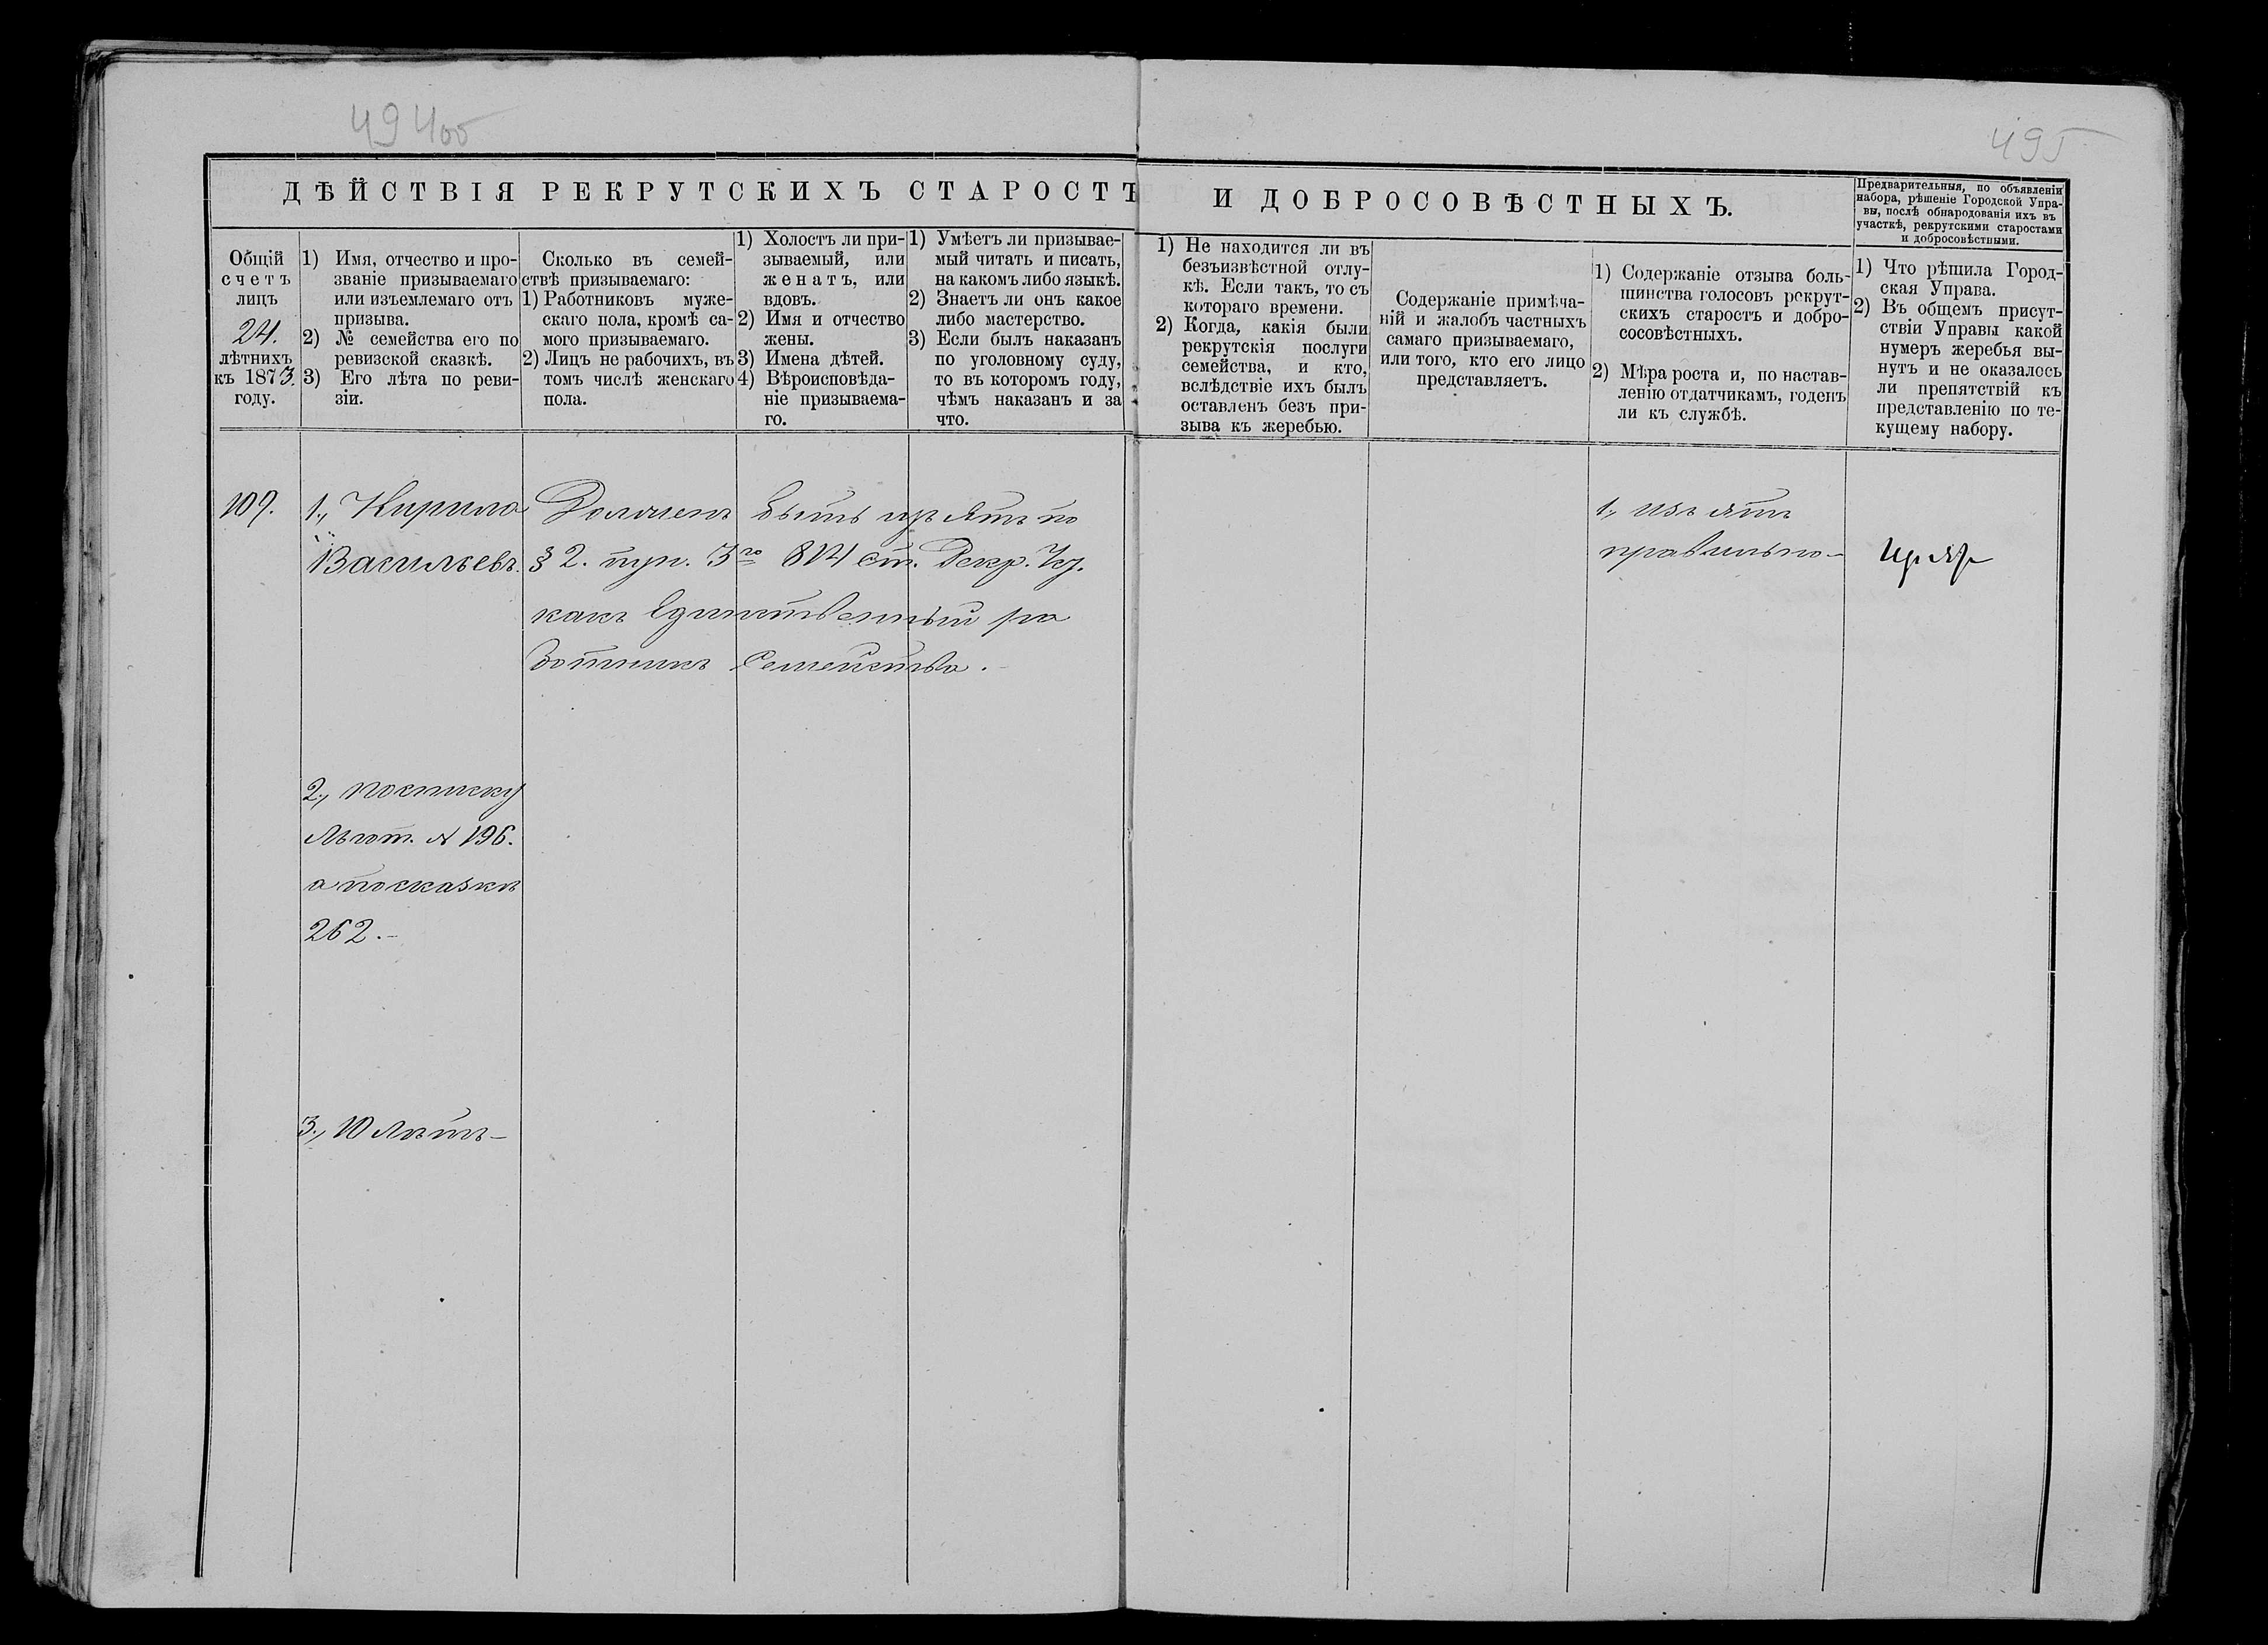 49400
495
ДѢЙСТВІЯ РЕКРУТСКИХЪ СТАРОСТЪ И ДОБРОСОВѢСТНЫХЪ.
Общій
счетъ
лицъ
24.
лѣтнихъ
къ 1873.
году.
1) Имя, отчество и про-
званіе призываемаго
или изъемлемаго отъ
призыва.
2) № семейства его по
ревизской сказкѣ.
3) Его лѣта по реви-
зіи.
Сколько въ семей-
ствѣ призываемаго:
1) Работниковъ муже-
скаго пола, кромѣ са-
мого призываемаго.
2) Лицъ не рабочихъ, въ
томъ числѣ женскаго
пола.
1) Холостъ ли при-
зываемый, или
женатъ, или
вдовъ.
2) Имя и отчество
жены.
3) Имена дѣтей.
4) Вѣроисповѣда-
ніе призываема-
го.
1) Умѣетъ ли призывае-
мый читать и писать,
на какомъ либо языкѣ.
2) Знаетъ ли онъ какое
либо мастерство.
3) Если былъ наказанъ
по уголовному суду,
то въ которомъ году,
чѣмъ наказанъ и за
что.
1) Не находится ли въ
безъизвѣстной отлу-
кѣ. Если такъ, то съ
котораго времени.
2) Когда, какія были
рекрутскія послуги
семейства, и кто,
вслѣдствіе ихъ былъ
оставленъ безъ при-
зыва къ жеребью.
Содержаніе примѣча-
ній и жалобъ частныхъ
самаго призываемаго,
или того, кто его лицо
представляетъ.
1) Содержаніе отзыва боль-
шинства голосовъ рекрут-
скихъ старостъ и добро-
сосовѣстныхъ.
2) Мѣра роста и, по настав-
ленію отдатчикамъ, годенъ
ли къ службѣ.
Предварительныя, по объявленіи
набора, рѣшеніе Городской Упра-
вы, послѣ обнародованія ихъ въ
участкѣ, рекрутскими старостами
и добросовѣстными.
1) Что рѣшила Город-
ская Управа.
2) Въ общемъ присут-
ствіи Управы какой
нумеръ жеребья вы-
нутъ и не оказалось
ли препятствій къ
представленію по те-
кущему набору.
109.
1., Кирило
Васильевъ.
2., по списку
Льгот. № 196.
а по сказкѣ
262.-
3., 10 лѣтъ-
Долженъ быть изъятъ по
§ 2. пун. 3го 814 ст. Рекр. Уст.
какъ единственный ра
ботникъ семейства.-
1., изъятъ
правильно-